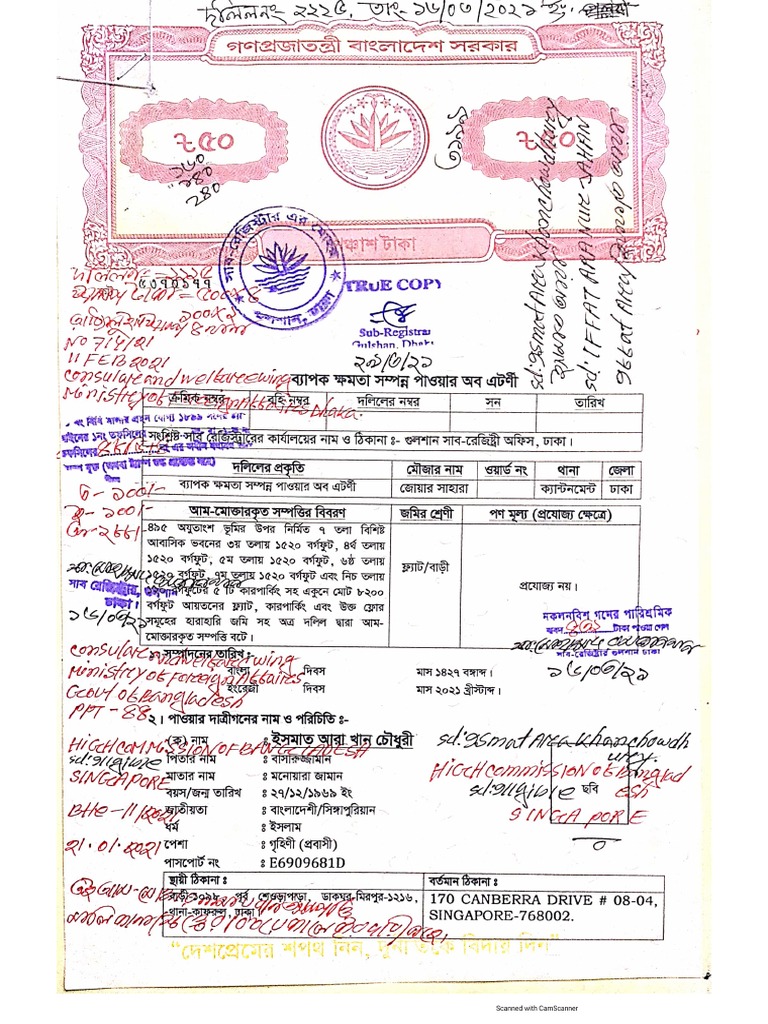 দলিল নং ২২২৫, তাং ১৬/০৩/২০২১ ইং
গণপ্রজাতন্ত্রী বাংলাদেশ সরকার
৳৫০
৳৫০
২৮০
280
পঞ্চাশ টাকা
সাব-রেজিস্ট্রার এর মোহর
গুলশান, ঢাকা
sd: Ismat Ara Khan Chowdhury
sd: IFFAT ARA NUR JAHAN
TRUE COPY
Sub-Registrar
Gulshan, Dhaka
No 714/21
11 FEB 2021
Consular and welfare wing
ব্যাপক ক্ষমতা সম্পন্ন পাওয়ার অব এটর্ণী
Ministry of Foreign Affairs Dhaka.
ক্রমিক নম্বর বহি নম্বর দলিলের নম্বর সন তারিখ
সংশ্লিষ্ট-সাব রেজিস্ট্রারের কার্যালয়ের নাম ও ঠিকানা ঃ- গুলশান সাব-রেজিষ্ট্রী অফিস, ঢাকা।
দলিলের প্রকৃতি মৌজার নাম ওয়ার্ড নং থানা জেলা
ব্যাপক ক্ষমতা সম্পন্ন পাওয়ার অব এটর্ণী জোয়ার সাহারা ক্যান্টনমেন্ট ঢাকা
আম-মোক্তারকৃত সম্পত্তির বিবরণ জমির শ্রেণী পণ মূল্য (প্রযোজ্য ক্ষেত্রে)
৪৯৫ অযুতাংশ ভূমির উপর নির্মিত ৭ তলা বিশিষ্ট
আবাসিক ভবনের ৩য় তলায় ১৫২০ বর্গফুট, ৪র্থ তলায়
১৫২০ বর্গফুট, ৫ম তলায় ১৫২০ বর্গফুট, ৬ষ্ঠ তলায়
বর্গফুট, ৭ম তলায় ১৫২০ বর্গফুট এবং নিচ তলায়
বর্গফুটের ৫ টি কারপার্কিং সহ একুনে মোট ৮২০০
বর্গফুট আয়তনের ফ্ল্যাট, কারপার্কিং এবং উক্ত ফ্লোর
সমূহের হারাহারি জমি সহ অত্র দলিল দ্বারা আম-
মোক্তারকৃত সম্পত্তি বটে।
ফ্ল্যাট/বাড়ী
প্রযোজ্য নয়।
সাব রেজিস্ট্রার, গুলশান
ঢাকা।
১৬/০৩/২১
নকলনবিশ গনের পারিশ্রমিক
টাকা পাওয়া গেল
সাব-রেজিষ্ট্রার গুলশান ঢাকা
১৬/০৩/২১
১। সম্পাদনের তারিখ ঃ-
বাংলা দিবস মাস ১৪২৭ বঙ্গাব্দ।
ইংরেজী দিবস মাস ২০২১ খ্রীস্টাব্দ।
Consular and welfare wing
Ministry of Foreign Affaires
Govt of Bangladesh
PPT-88
২। পাওয়ার দাত্রীগনের নাম ও পরিচিতি ঃ-
(ক) নাম ঃ ইসমাত আরা খান চৌধুরী
পিতার নাম ঃ বাসারুজ্জামান
মাতার নাম ঃ মনোয়ারা জামান
বয়স/জন্ম তারিখ ঃ ২৭/১২/১৯৬৯ ইং
জাতীয়তা ঃ বাংলাদেশী/সিঙ্গাপুরিয়ান
ধর্ম ঃ ইসলাম
পেশা ঃ গৃহিণী (প্রবাসী)
পাসপোর্ট নং ঃ E6909681D
HIGH COMMISSION OF BANGLADESH
sd: illigible
SINGAPORE
BHC-11/2021
21.01.2021
sd: Ismat Ara Khan Chowdh
ury
HIGH Commission of Banglad
esh
sd: illigible
ছবি
SINGAPORE
স্থায়ী ঠিকানা ঃ বর্তমান ঠিকানা ঃ
পূর্ব শেওড়াপাড়া, ডাকঘর-মিরপুর-১২১৬,
থানা-কাফরুল, ঢাকা
170 CANBERRA DRIVE # 08-04,
SINGAPORE-768002.
“দেশপ্রেমের শপথ নিন, দুর্নীতিকে বিদায় দিন”
Scanned with CamScanner